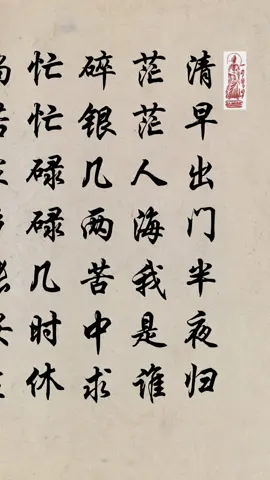 清早出门半夜归
茫茫人海我是谁
碎银几两苦中求
忙忙碌碌几时休